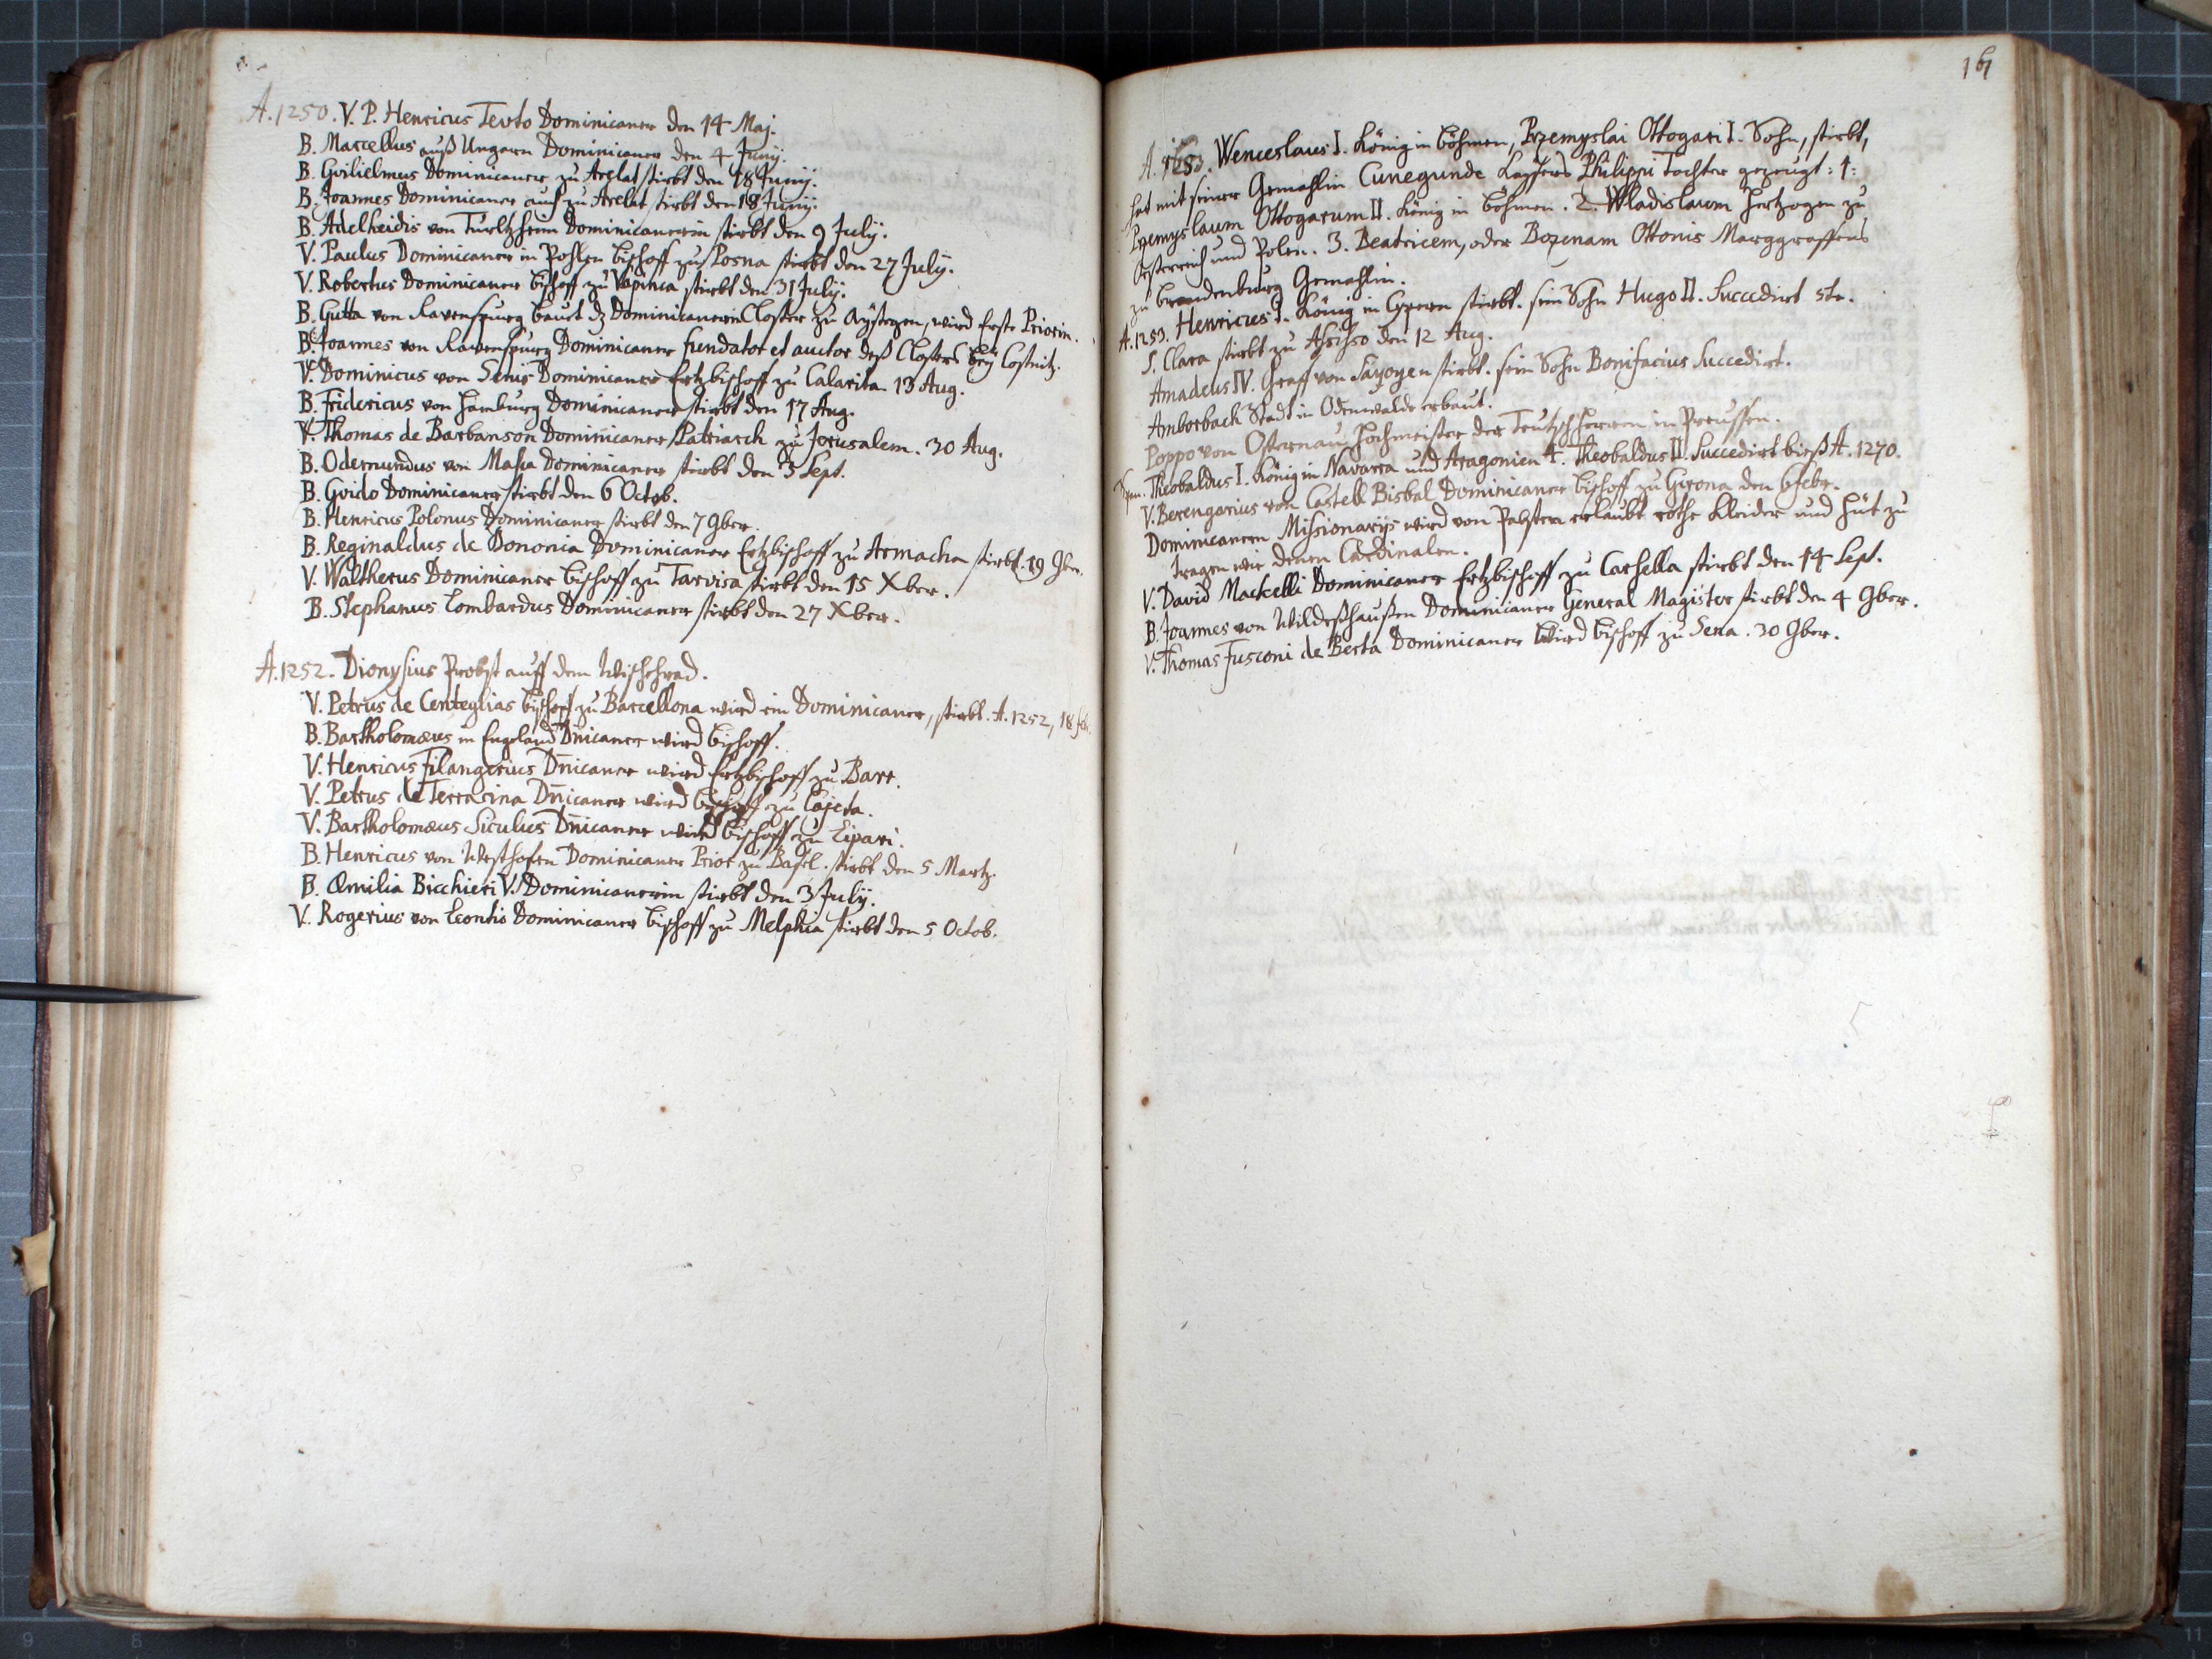 A. 1250. V. P. Henricus Teuto Dominicaner den 14 Maj.
B. Marcellus auß Ungarn Dominicaner den 4 Junij.
B. Guilielmus Dominicaner zu Arelat stirbt den 18 Junij.
B. Joannes Dominicaner auch zu Arelat stirbt den 18 Junij.
B. Adelheidis von Türltzheim Dominicanerin stirbt den 9 Julij.
V. Paulus Dominicaner in Pohlen Bischoff zu Posna stirbt den 27 Julij.
V. Robertus Dominicaner Bischoff zu Vapinca stirbt den 31 Julij.
B. Gutta von Ravenspurg baut dz Dominicanerin Closter zu Aÿstegen, wird erste Priorin.
B. Joannes von Ravenspurg Dominicaner fundator et auctor deß Closters beÿ Costnitz.
V. Dominicus von Senis Dominicaner Ertzbischoff zu Calarita 13 Aug.
B. Fridericus von Hamburg Dominicaner stirbt den 17 Aug.
V. Thomas de Barbanson Dominicaner Patriarch zu Jerusalem. 30 Aug.
B. Odemundus von Massa Dominicaner stirbt den 3 Sept.
B. Guido Dominicaner stirbt den 6 Octob.
B. Henricus Polonus Dominicaner stirbt den 7 9ber.
B. Reginaldus de Bononia Dominicaner Ertzbischoff zu Armacha stirbt. 19 9ber.
V. Waltherus Dominicaner Bischoff zu Tarvisa stirbt den 15 Xber.
B. Stephanus Lombardus Dominicaner stirbt den 27 Xber.
A. 1252. Dionysius Probst auff dem Wischehrad.
V. Petrus de Centeglias Bischoff zu Barcellona wird ein Dominicaner, stirbt. A. 1252, 18 feb.
B. Bartholomæus in Engeland Dn̄icaner wird Bischoff.
V. Henricus Filangerius Dn̄icaner wird Ertzbischoff zu Barr.
V. Petrus de Terracina Dn̄icaner wird Bischoff zu Cajeta.
V. Bartholomæus Siculus Dn̄icaner wird Bischoff zu Lipari.
B. Henricus von Westhofen Dominicaner Prior zu Basel. stirbt den 5 Martz.
B. Æmilia Bicchieri V. Dominicanerin stirbt den 3 Julij.
V. Rogerius von Leontio Dominicaner Bischoff zu Melphia stirbt den 5 Octob.
161
A. 1253. Wenceslaus I. König in Böhmen, Przemyslai Ottogari I. Sohn, stirbt,
hat mit seiner Gemahlin Cunegunde Kaysers Philippi Tochter gezeugt: 1.
Przemyslaum Ottogarum II. König in Böhmen. 2. Wladislaum Hertzogen zu
Oesterreich und Polen. 3. Beatricem, oder Bozenam Ottonis Marggraffens
zu Brandenburg Gemahlin.
A. 1253. Henricus I. König in Cypern stirbt. sein Sohn Hugo II. Succedirt
S. Clara stirbt zu Assisso den 12 Aug.
Amadeus IV. Graff von Savoyen stirbt. sein Sohn Bonifacius Succedirt.
Amborbach Stadt in Odenwalde erbaut.
Poppo von Osternau Hochmeister der Teutschherren in Preussen.
Theobaldus I. König in Navarra und Aragonien †. Theobaldus II. Succedirt bieß A. 1270.
V. Berengarius von Castell Bisbal Dominicaner Bischoff zu Girona den 6 febr.
Dominicanern Missionarijs wird von Pabsten erlaubt rothe Kleider und Hüt zu
tragen wie denen Cardinalen.
V. David Mackelli Dominicaner Ertzbischoff zu Cashella stirbt den 14 Sept.
B. Joannes von Wildeßhaußen Dominicaner General Magister stirbt den 4 9ber.
V. Thomas Fusconi de Berta Dominicaner wird Bischoff zu Sena. 30 9ber.